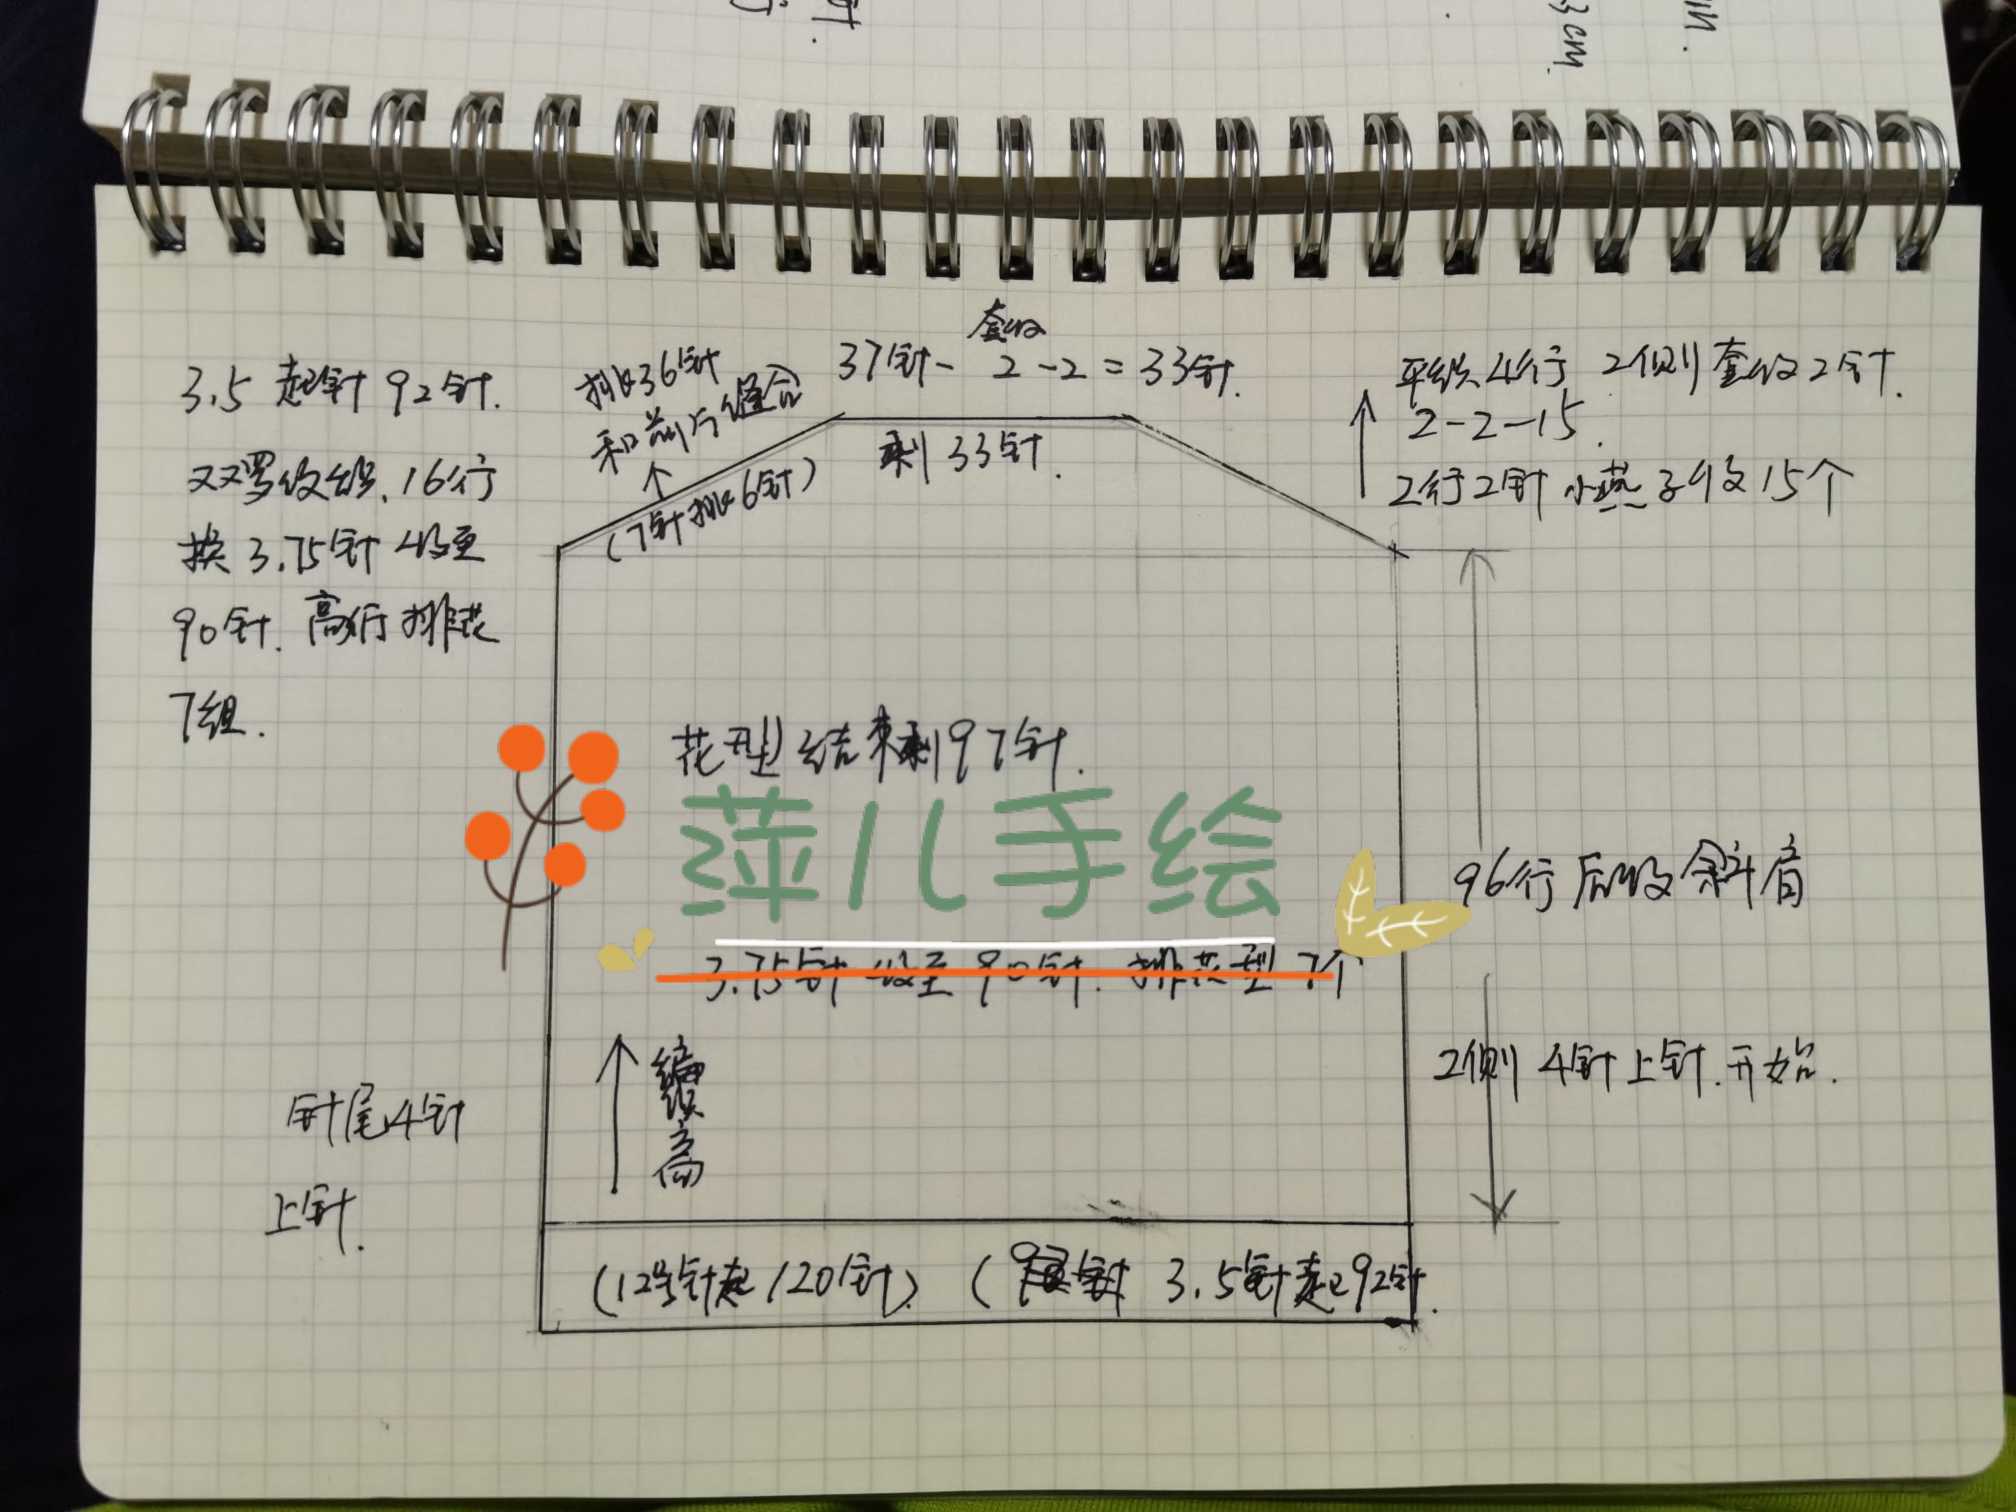 3cm.
3.5 起针 92针.
双罗纹织, 16行
换 3.75针 收至
90针. 高行 排花
7组.
挑36针
和前片缝合
(7针挑6针)
套收
37针- 2-2=33针.
剩 33针.
平织4行 2侧套收2针.
2-2-15.
2行2针 小燕子收15个
花型结束剩97针.
萍儿手绘
3.75针 收至90针. 排花型 7个
96行后收斜肩
2侧 4针上针.开始.
编织高
针尾4针
上针.
(12号针起120针) ( 3.5针起92针.